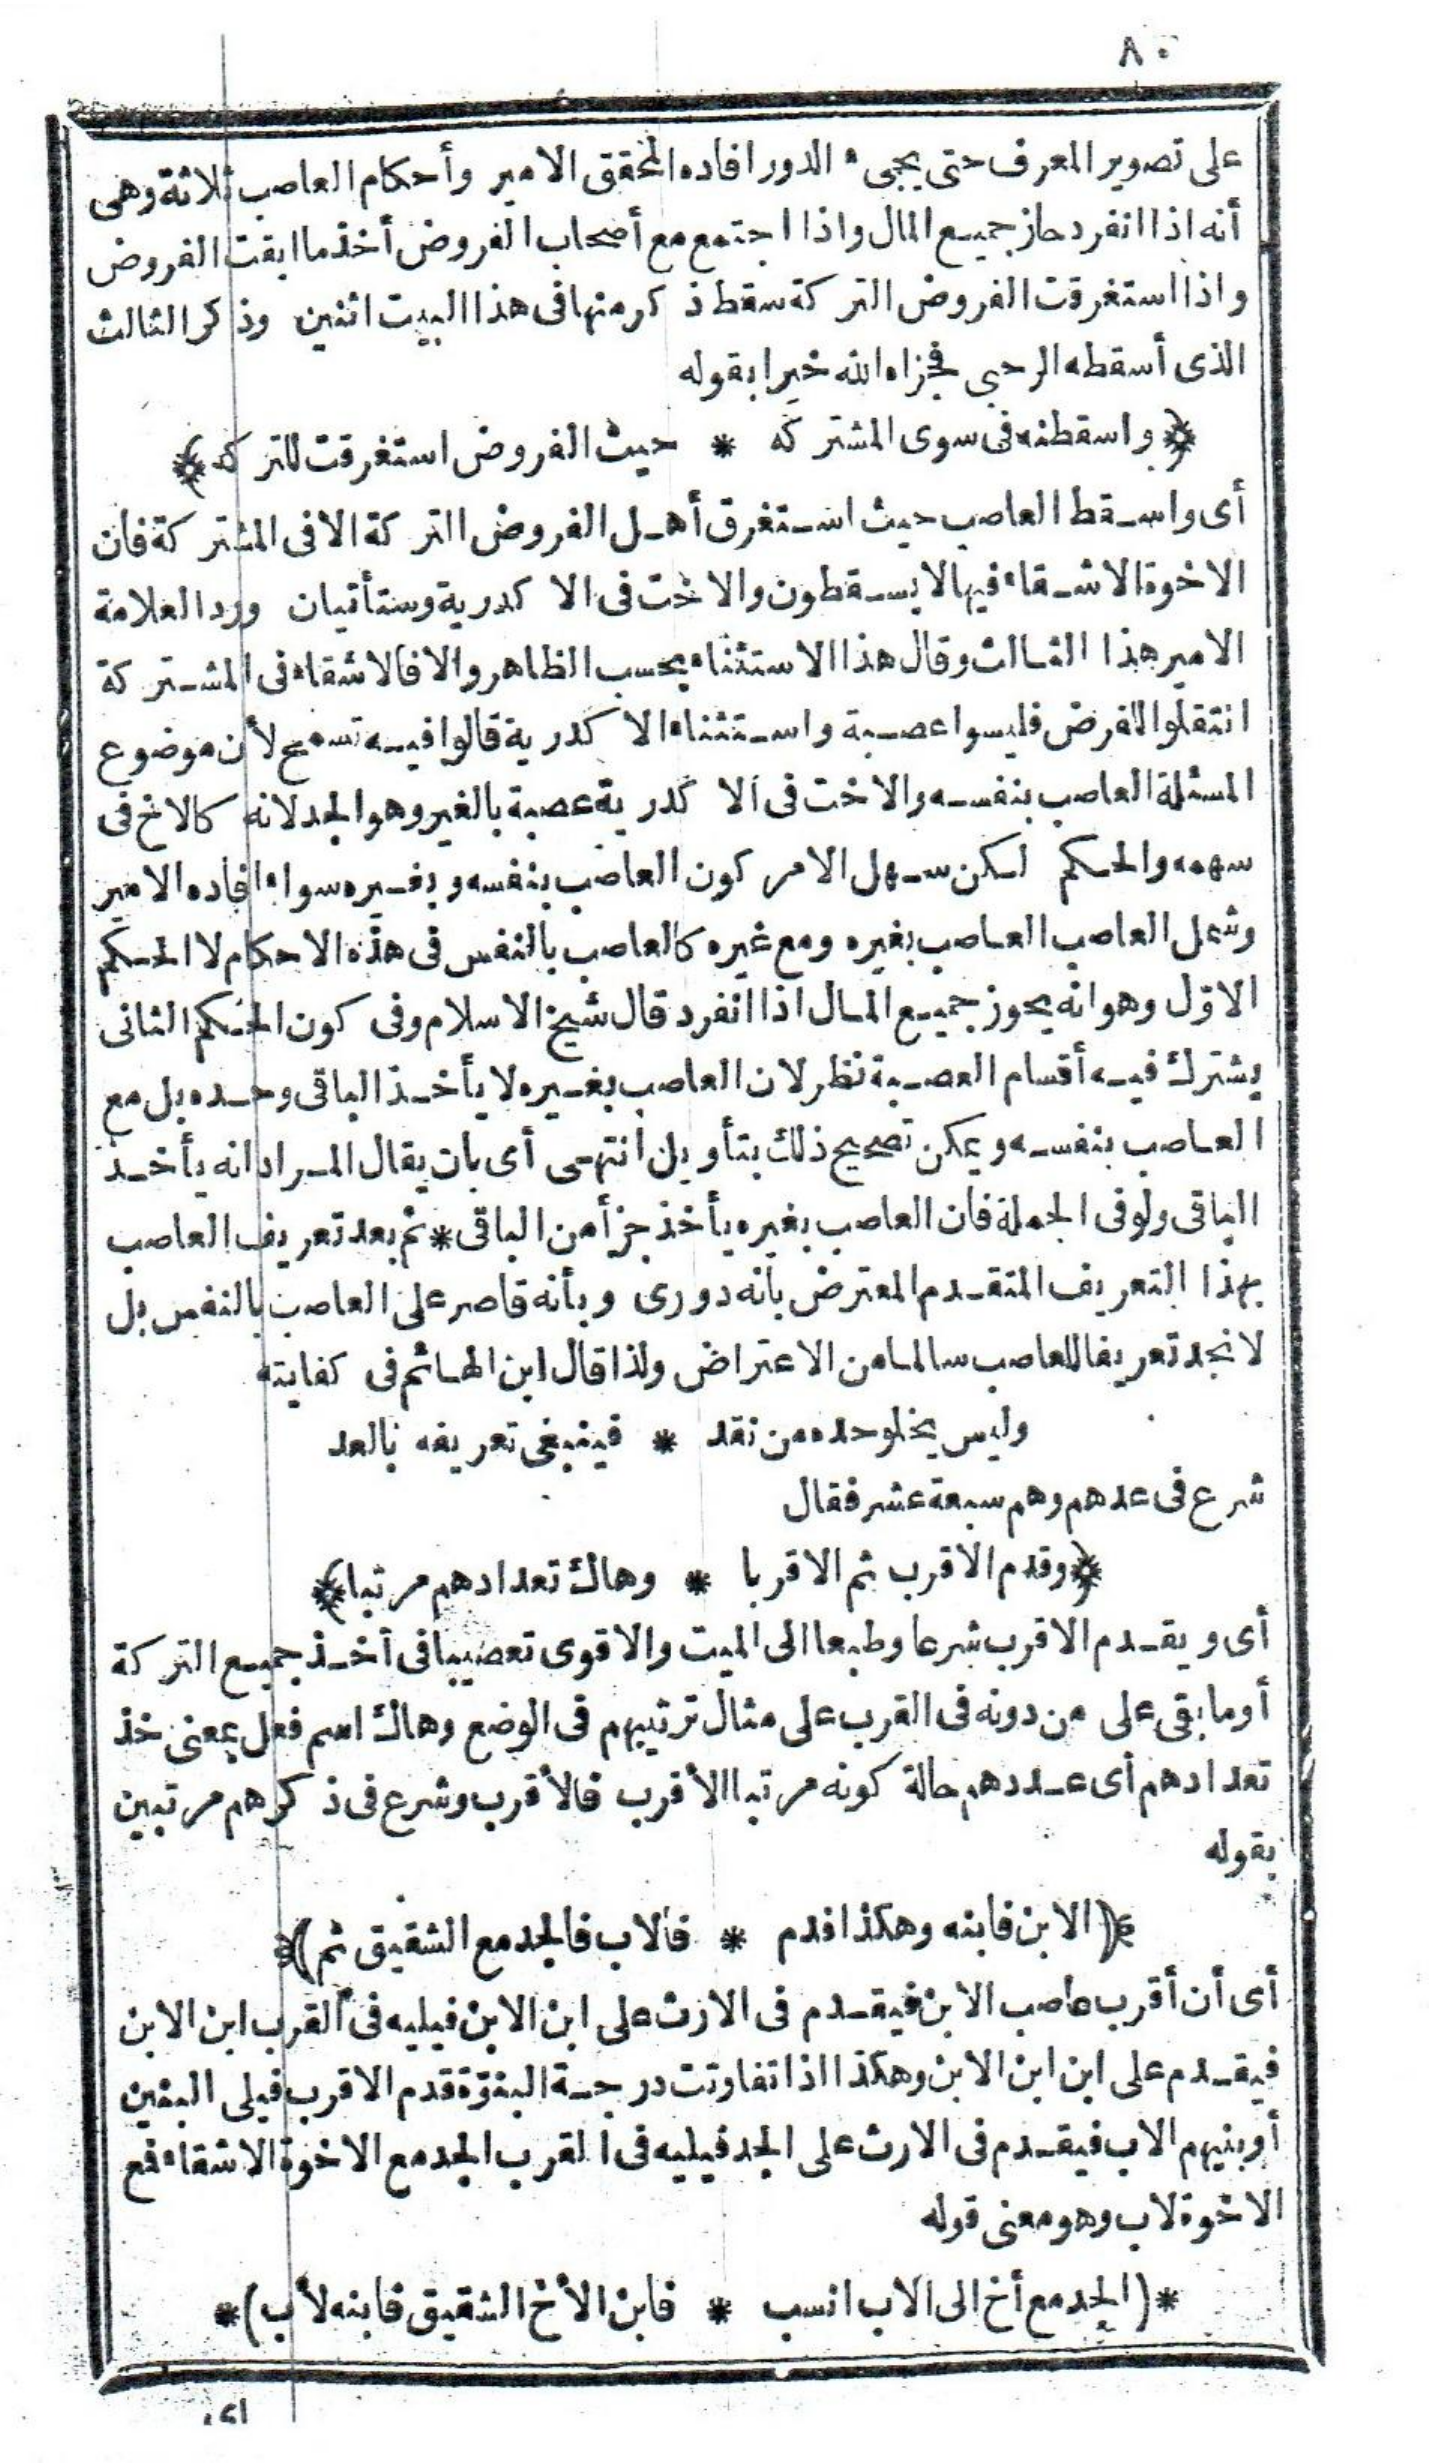 ٨٠
على تصوير المعرف حتى يجىء الدور افاده المحقق الامير وأحكام العاصب ثلاثة وهى
أنه اذا انفرد حاز جميع المال واذا اجتمع مع أصحاب الفروض أخذ ما ابقت الفروض
واذا استغرقت الفروض التركة سقط ذكر منها فى هذا البيت اثنين وذكر الثالث
الذى أسقطه الرحبى فجزاه الله خيرا بقوله
﴿واسقطنه فى سوى المشتركه * حيث الفروض استغرقت للتركه﴾
أى واسقط العاصب حيث استغرق أهل الفروض التركة الا فى المشتركة فان
الاخوة الاشقاء فيها لا يسقطون والاخت فى الاكدرية وستأتيان ورد العلامة
الامير هذا الثالث وقال هذا الاستثناء بحسب الظاهر والا فالاشقاء فى المشتركة
انتقلوا للفرض فليسوا عصبة واستثناء الاكدرية قالوا فيه تسمح لأن موضوع
المسئلة العاصب بنفسه والاخت فى الاكدرية عصبة بالغير وهو الجد لانه كالاخ فى
سهمه والحكم لكن سهل الامر كون العاصب بنفسه وبغيره سواء افاده الامير
وشمل العاصب العاصب بغيره ومع غيره كالعاصب بالنفس فى هذه الاحكام لا الحكم
الاوّل وهو انه يحوز جميع المال اذا انفرد قال شيخ الاسلام وفى كون الحكم الثانى
يشترك فيه أقسام العصبة نظر لان العاصب بغيره لا يأخذ الباقى وحده بل مع
العاصب بنفسه ويمكن تصحيح ذلك بتأويل انتهى أى بان يقال المراد انه يأخذ
الباقى ولو فى الجملة فان العاصب بغيره يأخذ جزأ من الباقى * ثم بعد تعريف العاصب
بهذا التعريف المتقدم المعترض بأنه دورى وبأنه قاصر على العاصب بالنفس بل
لا نجد تعريفا للعاصب سالما من الاعتراض ولذا قال ابن الهائم فى كفايته
وليس يخلو حده من نقد * فينبغى تعريفه بالعد
شرع فى عدهم وهم سبعة عشر فقال
﴿وقدم الاقرب ثم الاقربا * وهاك تعدادهم مرتبا﴾
أى ويقدم الاقرب شرعا وطبعا الى الميت والاقوى تعصيبا فى أخذ جميع التركة
أو ما بقى على من دونه فى القرب على مثال ترتيبهم فى الوضع وهاك اسم فعل بمعنى خذ
تعدادهم أى عددهم حالة كونه مرتبا الأقرب فالأقرب وشرع فى ذكرهم مرتبين
بقوله
﴿(الابن فابنه وهكذا قدم * فالاب فالجد مع الشقيق ثم)﴾
أى أن أقرب عاصب الابن فيقدم فى الارث على ابن الابن فيليه فى القرب ابن الابن
فيقدم على ابن ابن الابن وهكذا اذا تفاوتت درجة البنوّة قدم الاقرب فيلى البنين
أو بنيهم الاب فيقدم فى الارث على الجد فيليه فى القرب الجد مع الاخوة الاشقاء فمع
الاخوة لاب وهو معنى قوله
*(الجد مع أخ الى الاب انسب * فابن الأخ الشقيق فابنه لأب)*
اى